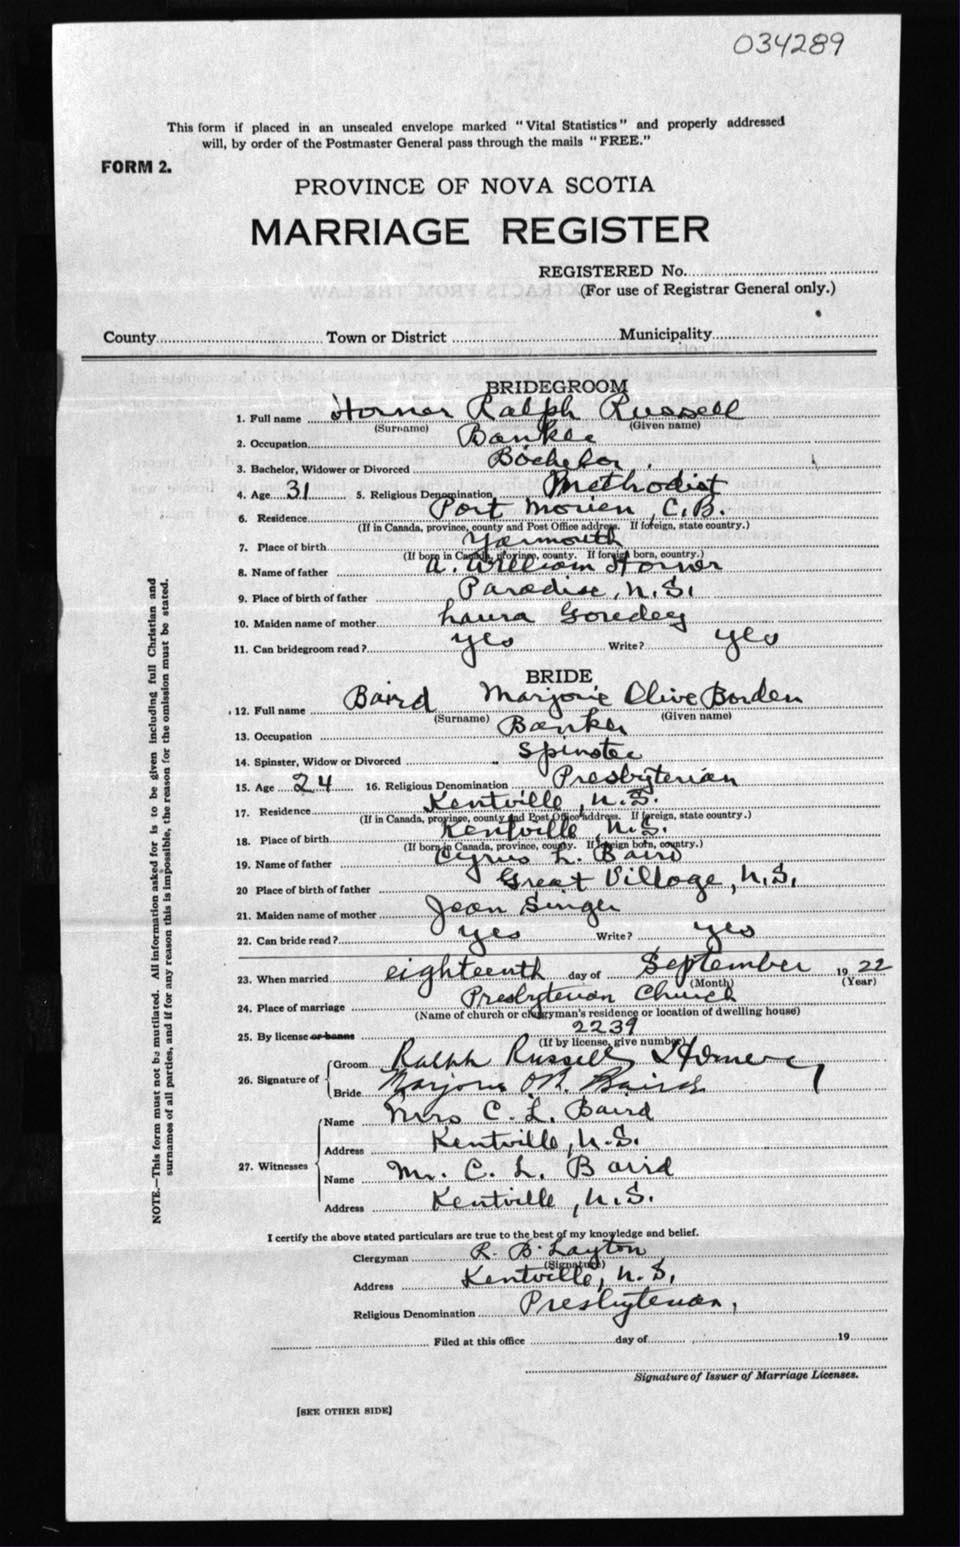 034289
This form if placed in an unsealed envelope marked "Vital Statistics" and properly addressed
will, by order of the Postmaster General pass through the mails "FREE."
FORM 2.
PROVINCE OF NOVA SCOTIA
MARRIAGE REGISTER
REGISTERED No.
(For use of Registrar General only.)
County Town or District Municipality
BRIDEGROOM
1. Full name Horner Ralph Russell
(Surname) (Given name)
2. Occupation Banker
3. Bachelor, Widower or Divorced Bachelor.
4. Age 31 5. Religious Denomination Methodist
6. Residence Port Morien, C.B.
(If in Canada, province, county and Post Office address. If foreign, state country.)
7. Place of birth Yarmouth
(If born in Canada, province, county. If foreign born, country.)
8. Name of father A. William Horner
9. Place of birth of father Paradise, N.S.
10. Maiden name of mother Laura
11. Can bridegroom read? yes Write? yes
BRIDE
12. Full name Baird Marjorie Olive Borden
(Surname) (Given name)
13. Occupation Banker
14. Spinster, Widow or Divorced Spinster
15. Age 24 16. Religious Denomination Presbyterian
17. Residence Kentville, N.S.
(If in Canada, province, county and Post Office address. If foreign, state country.)
18. Place of birth Kentville, N.S.
(If born in Canada, province, county. If foreign born, country.)
19. Name of father Cyrus L. Baird
20 Place of birth of father Great Village, N.S.
21. Maiden name of mother Jean Singer
22. Can bride read? yes Write? yes
23. When married eighteenth day of September 1922
(Month) (Year)
24. Place of marriage Presbyterian Church
(Name of church or clergyman's residence or location of dwelling house)
25. By license or banns 2239
(If by license, give number)
26. Signature of Groom Ralph Russell Horner
Bride Marjorie O.B. Baird
27. Witnesses Name Mrs C. L. Baird
Address Kentville, N.S.
Name Mr. C. L. Baird
Address Kentville, N.S.
I certify the above stated particulars are true to the best of my knowledge and belief.
Clergyman R. B. Layton
(Signature)
Address Kentville, N.S.
Religious Denomination Presbyterian,
Filed at this office day of 19
Signature of Issuer of Marriage Licenses.
[SEE OTHER SIDE]
NOTE.—This form must not be mutilated. All information asked for is to be given including full Christian and
surnames of all parties, and if for any reason this is impossible, the reason for the omission must be stated.